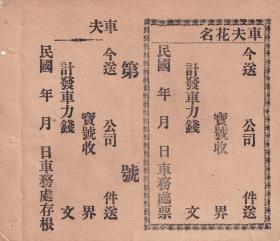 車夫花名
今送 公司 件送
寶號收 界
計發車力錢 文
民國 年 月 日車務處票
第 號
車夫
今送 公司 件送
寶號收 界
計發車力錢 文
民國 年 月 日車務處存根